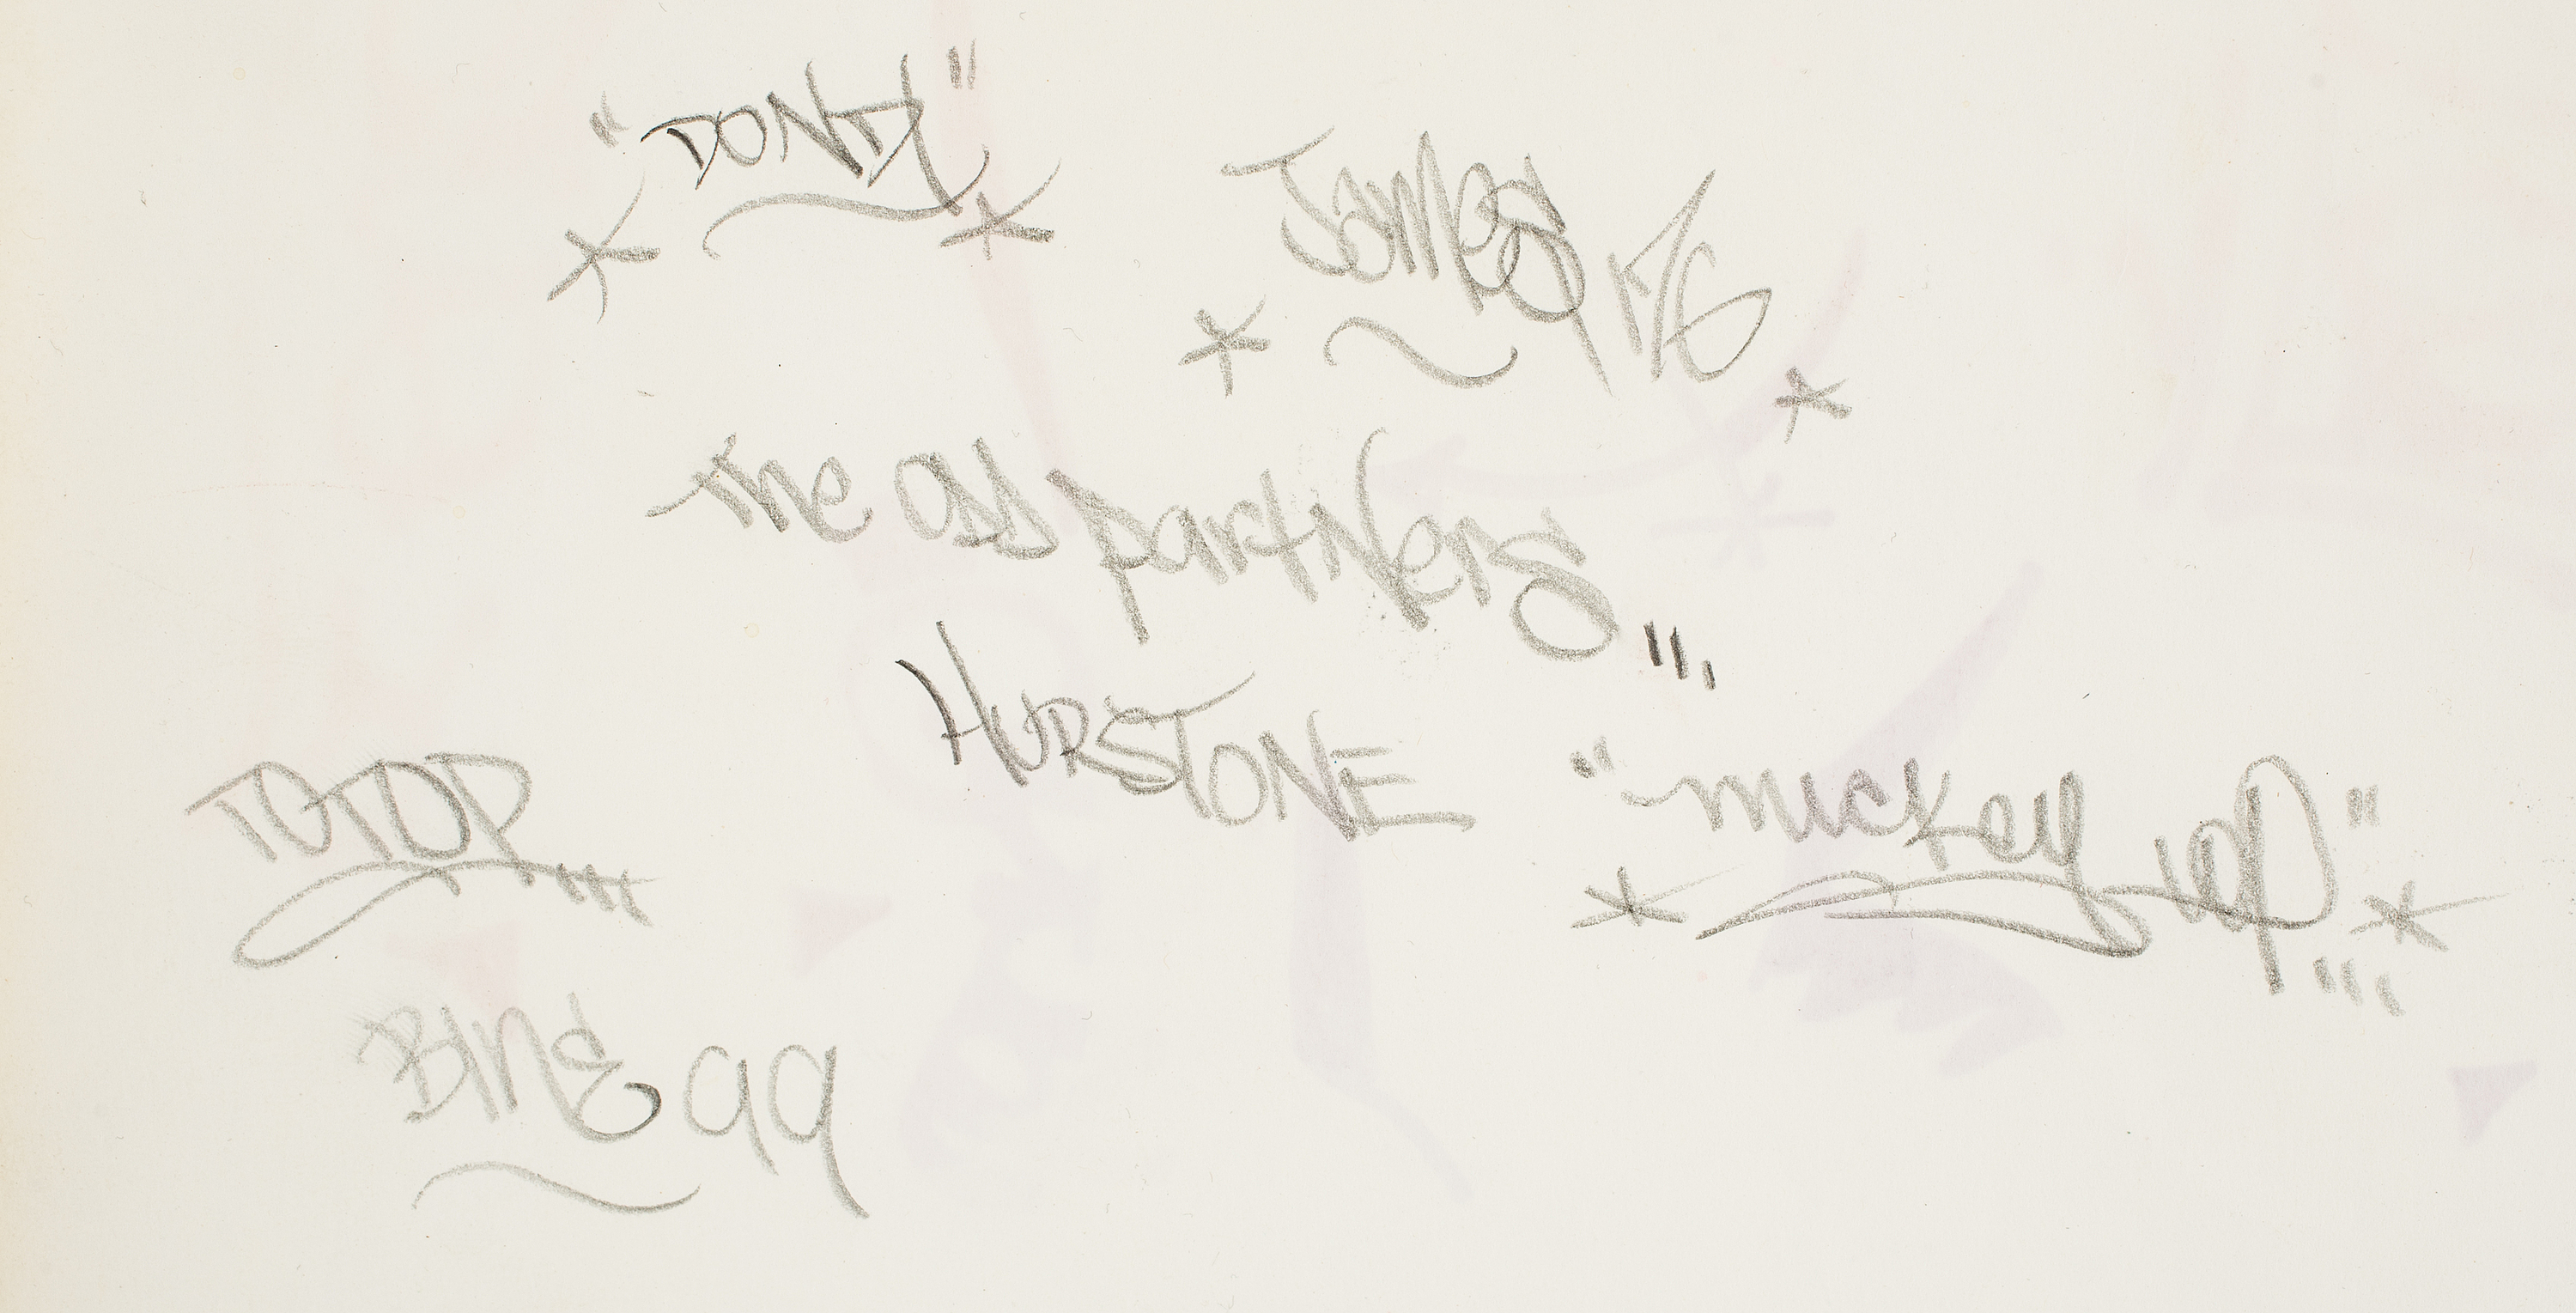 "DONDI"
James TOP
The Odd Partners",
HURSTONE
TOTOP,,,
"mickey TOP"
BINE 99